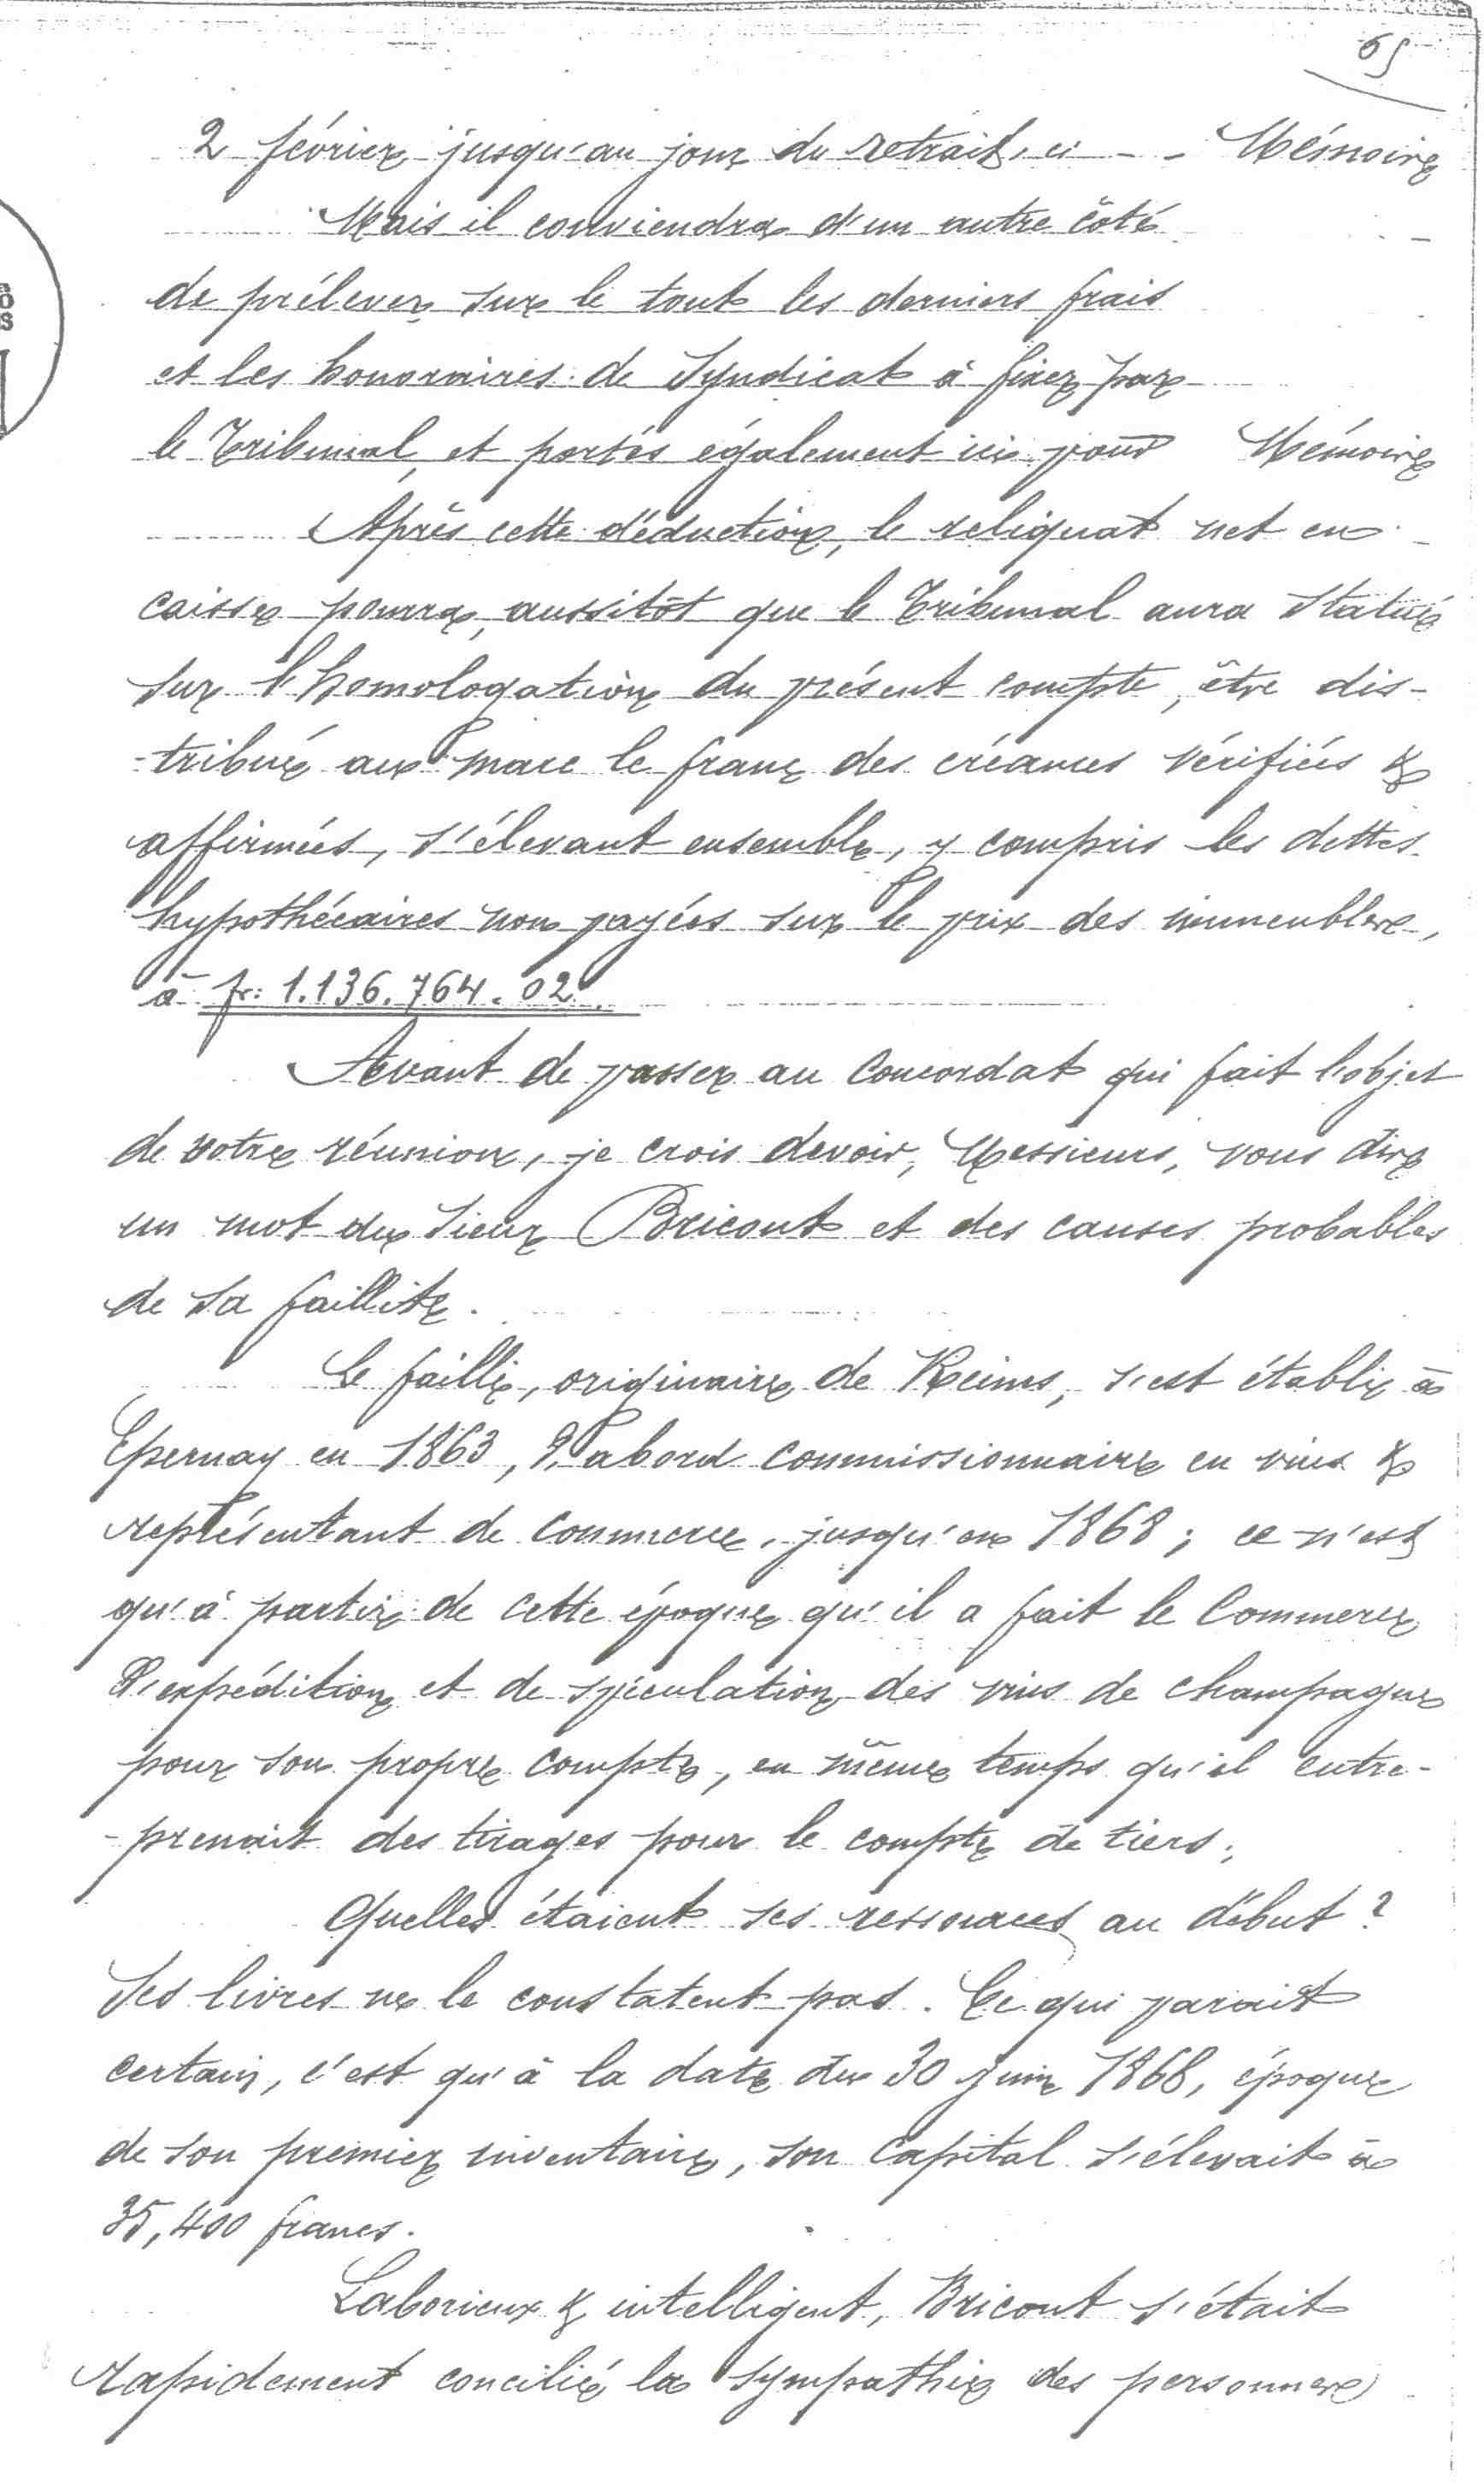 65
2 février jusqu'au jour du retrait, ci - - Mémoire
Mais il conviendra d'un autre côté
de prélever sur le tout les derniers frais
et les honoraires de Syndicat à fixer par
le Tribunal, et portés également ici pour Mémoire
Après cette déduction, le reliquat net en
caisse pourra, aussitôt que le Tribunal aura statué
sur l'homologation du présent compte, être dis-
-tribué au marc le franc des créances vérifiées &
affirmées, s'élevant ensemble, y compris les dettes
hypothécaires non payées sur le prix des immeubles,
à fr: 1.136.764.02.
Avant de passer au Concordat qui fait l'objet
de votre réunion, je crois devoir, Messieurs, vous dire
un mot du Sieur Bricout et des causes probables
de sa faillite.
Le failli, originaire de Reims, s'est établi à
Epernay en 1863, d'abord commissionnaire en vins &
représentant de commerce, jusqu'en 1868; ce n'est
qu'à partir de cette époque qu'il a fait le Commerce
d'expédition et de spéculation des vins de champagne
pour son propre compte, en même temps qu'il entre-
-prenait des tirages pour le compte de tiers.
Quelles étaient ses ressources au début ?
Ses livres ne le constatent pas. Ce qui parait
certain, c'est qu'à la date du 30 juin 1868, époque
de son premier inventaire, son Capital s'élevait à
35,400 francs.
Laborieux & intelligent, Bricout s'était
rapidement concilié la sympathie des personnes